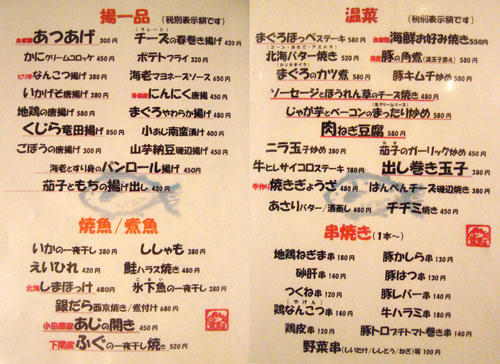 揚一品 (税別表示額です)
自家製 あつあげ 300円
チーズの春巻き揚げ 420円
かにクリームコロッケ 450円
ポテトフライ 320円
ピリ辛 なんこつ揚げ 380円
海老マヨネーズソース 650円
いかげそ唐揚げ 380円
青森産 にんにく唐揚 450円
地鶏の唐揚げ 580円
まぐろやわらか揚げ 480円
くじら竜田揚げ 850円
小あじ南蛮漬け 400円
ごぼうの唐揚げ 300円
山芋納豆磯辺揚げ 450円
海老とすり身のパンロール揚げ 450円
茄子ともちの揚げ出し 420円
焼魚/煮魚
いかの一夜干し 380円
ししゃも 380円
えいひれ 420円
鮭ハラス焼き 480円
北海 しまほっけ 480円
氷下魚の一夜干し 380円
銀だら西京焼き/煮付け 680円
小田原産 あじの開き 450円
下関産 ふぐの一夜干し焼き 520円
温菜 (税別表示額です)
まぐろほっぺステーキ 580円
自家製 海鮮お好み焼き 550円
(コーン・ホタテ・アスパラ)
北海バター焼き 520円
豚の角煮(温玉子添え) 580円
まぐろのカツ煮 580円
豚キムチ炒め 580円
ソーセージとほうれん草のチーズ焼き 480円
(生クリームソース)
じゃが芋とベーコンのまったり炒め 580円
肉ねぎ豆腐 580円
ニラ玉子炒め 450円
茄子のガーリック炒め 450円
牛ヒレサイコロステーキ 780円
出し巻き玉子 380円
手作り 焼きぎょうざ 480円
はんぺんチーズ磯辺焼き 380円
あさりバター/酒蒸し 480円
チヂミ焼き 450円
串焼き(1本~)
地鶏ねぎま串 180円
豚かしら串 130円
砂肝串 140円
豚はつ串 130円
つくね串 120円
豚レバー串 140円
(やげん)
鶏なんこつ串 140円
牛ハラミ串 180円
鶏皮串 120円
豚トロプチトマト巻き串 140円
野菜串(しいたけ/ししとう/ねぎ)等 100円